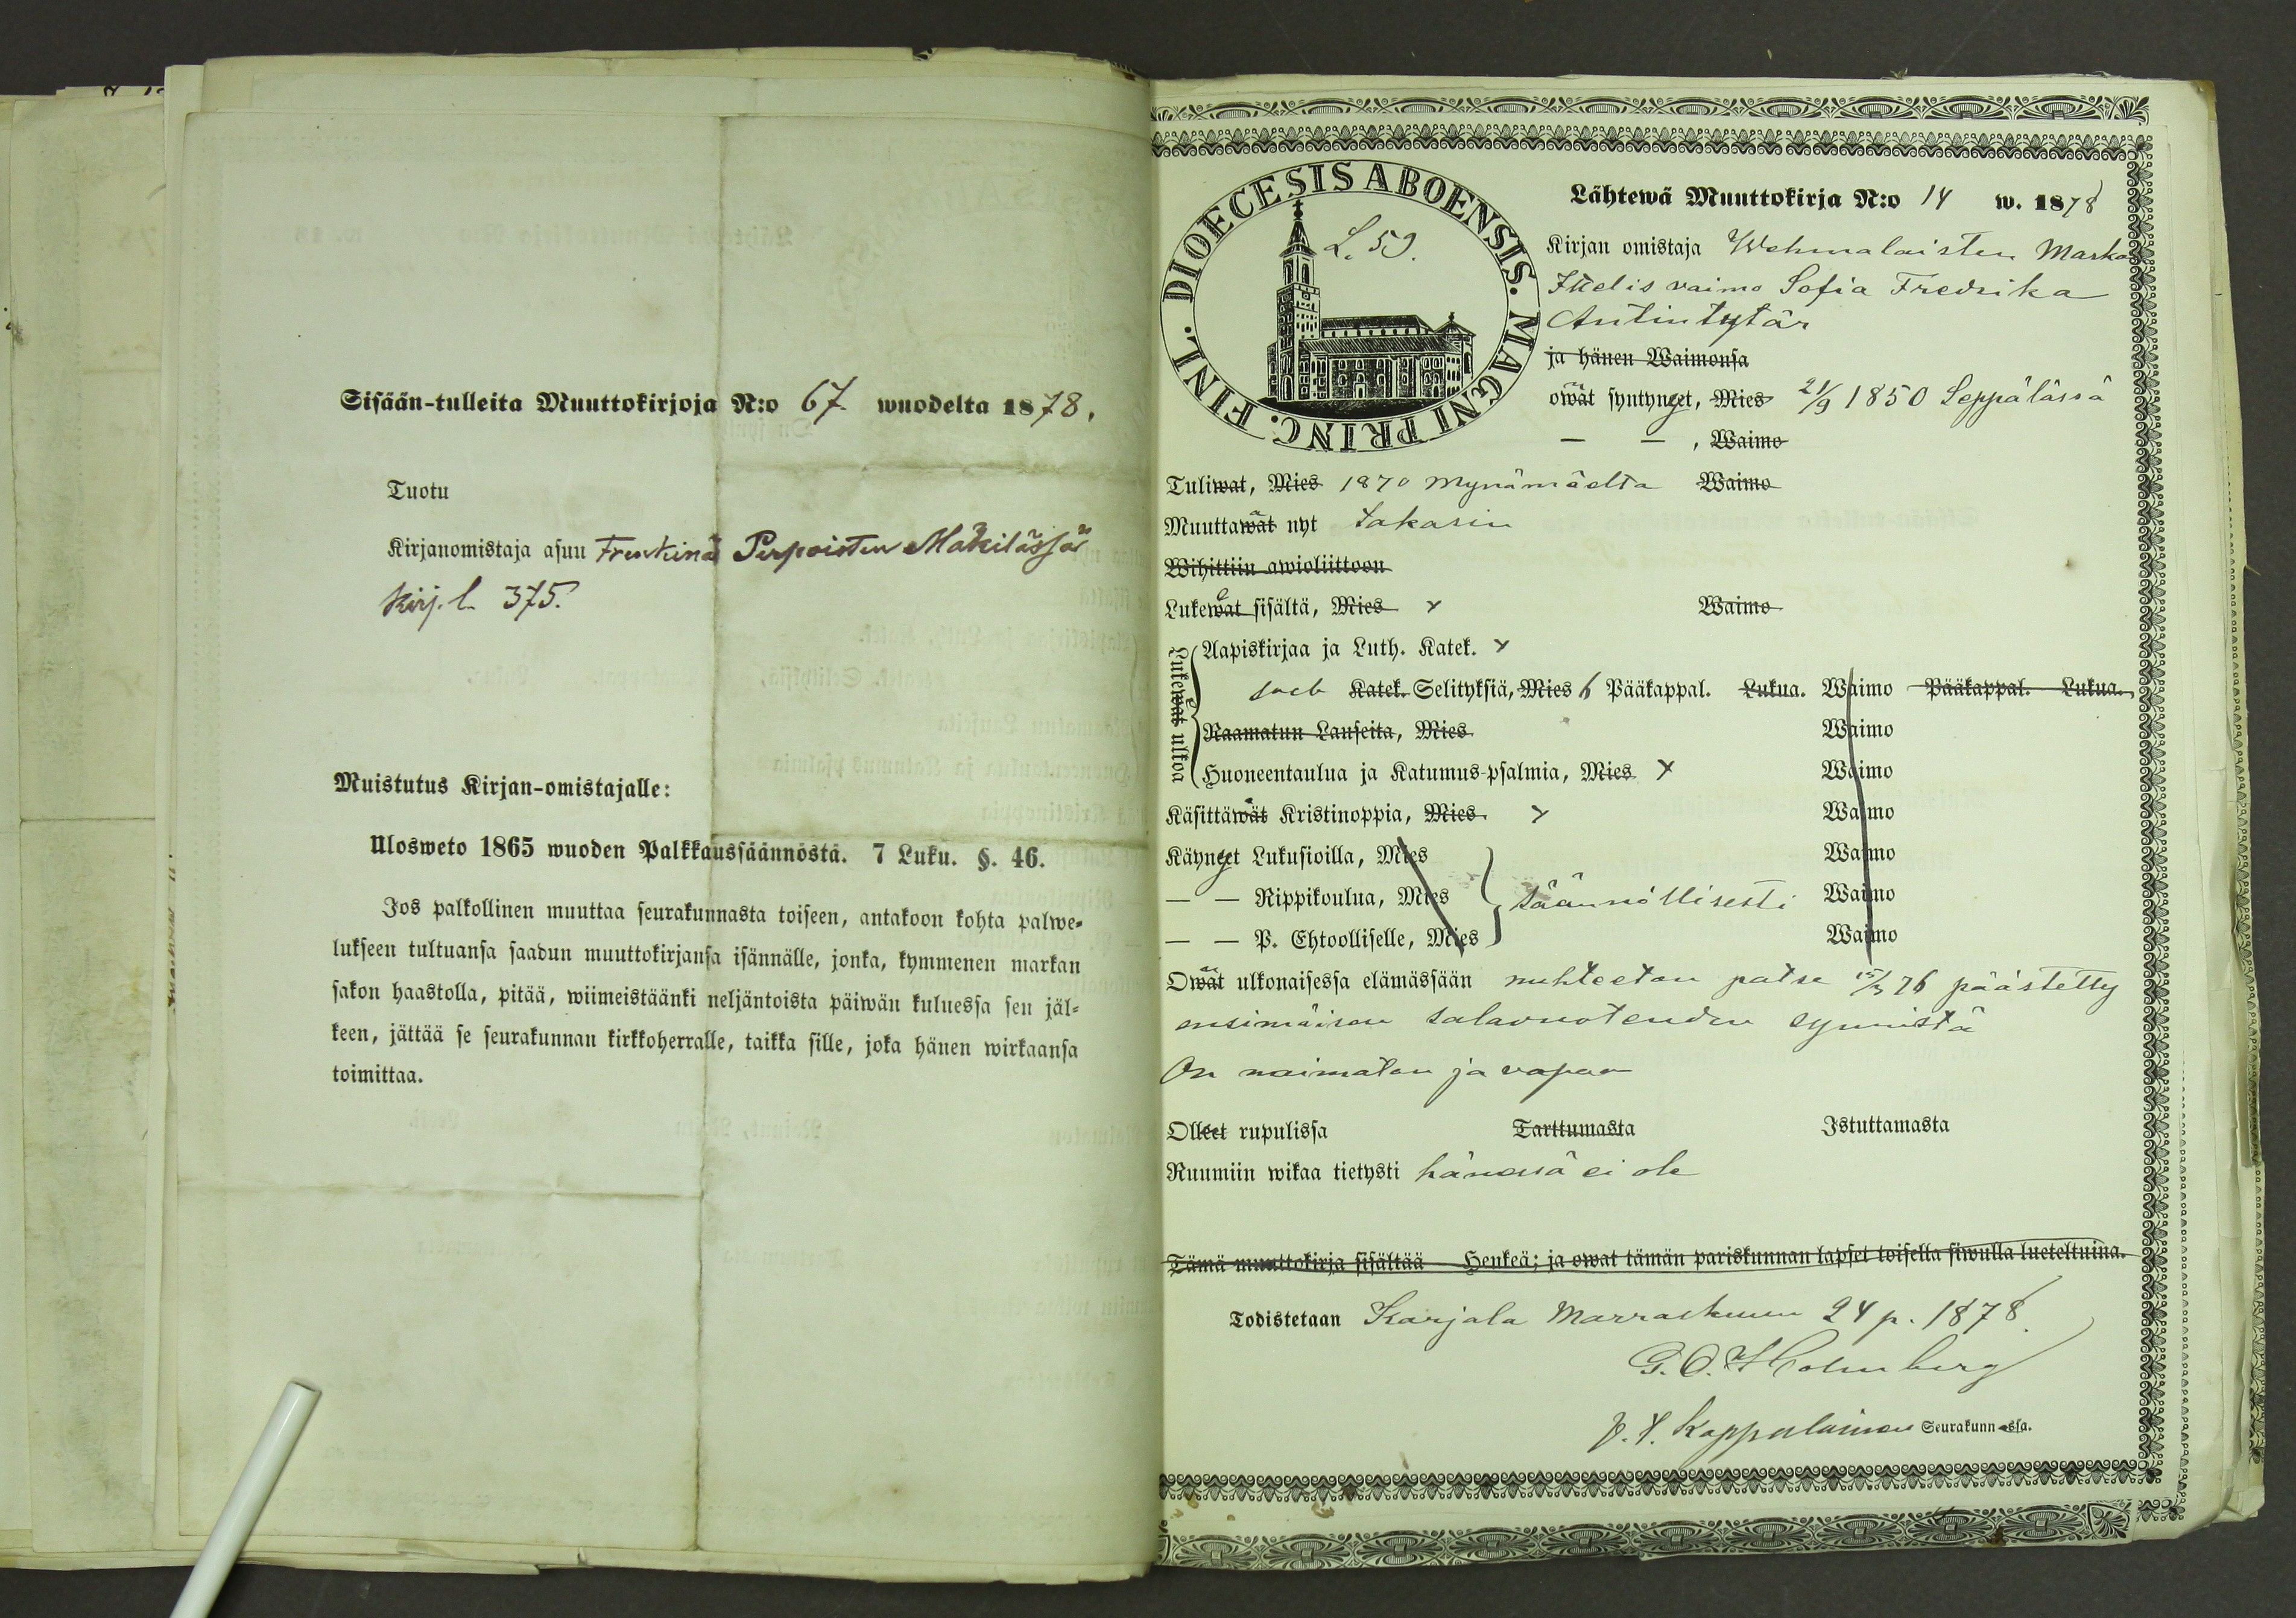 Sisään-tulleita Muuttokirjoja N:o 67 wuodelta 1878.
Tuotu
Kirjanomistaja asuu Frenkinä Perpoisten Mäkilässä
Kirj. l. 375.
Muistutus Kirjan-omistajalle:
Ulosweto 1865 wuoden Palkkaussäännöstä. 7 Luku. §. 46.
Jos palkollinen muuttaa seurakunnasta toiseen, antakoon kohta palwe-
lukseen tultuansa saadun muuttokirjansa isännälle, jonka, kymmenen markan
sakon haastolla, pitää, wiimeistäänki neljäntoista päiwän kuluessa sen jäl-
keen, jättää se seurakunnan kirkkoherralle, taikka sille, joka hänen wirkaansa
toimittaa.
DIOECESIS ABOENSIS. MAGNI PRINC. FINL.
L. 59.
Lähtewä Muuttokirja N:o 14 w. 1878
Kirjan omistaja Wehmalaisten Marko
Itselis vaimo Sofia Fredrika
Antintytär
ja hänen Waimonsa
owat syntynyt, Mies 21/9 1850 Seppälässä
— — , Waimo
Tuliwat, Mies 1870 Mynämäelta Waimo
Muuttawat nyt Sakasin
Wihittiin awioliittoon
Lukewat sisältä, Mies x Waimo
Lukewat ulkoa
Aapiskirjaa ja Luth. Katek. x
Katek. Selityksiä, Mies 6 Pääkappal. Lukua. Waimo Pääkappal. Lukua.
Raamatun Lauseita, Mies Waimo
Huoneentaulua ja Katumus-psalmia, Mies x Waimo
Käsittäwät Kristinoppia, Mies x Waimo
Käynyt Lukusioilla, Mies Waimo
— — Rippikoulua, Mies säännöllisesti Waimo
— — P. Ehtoolliselle, Mies Waimo
Owat ulkonaisessa elämässään nuhteetan patse 15/3 76 päästetty
ensimäisen salavuoteuden synnistä
On naimatan ja vapaa
Olleet rupulissa Tarttumasta Istuttamasta
Ruumiin wikaa tietysti hänessä ei ole
Tämä muuttokirja sisältää Henkeä; ja owat tämän pariskunnan lapset toisella siwulla lueteltuina.
Todistetaan Karjala Marraskuun 24 p. 1878
G. O. Holmberg
Kappalainen Seurakunnassa.